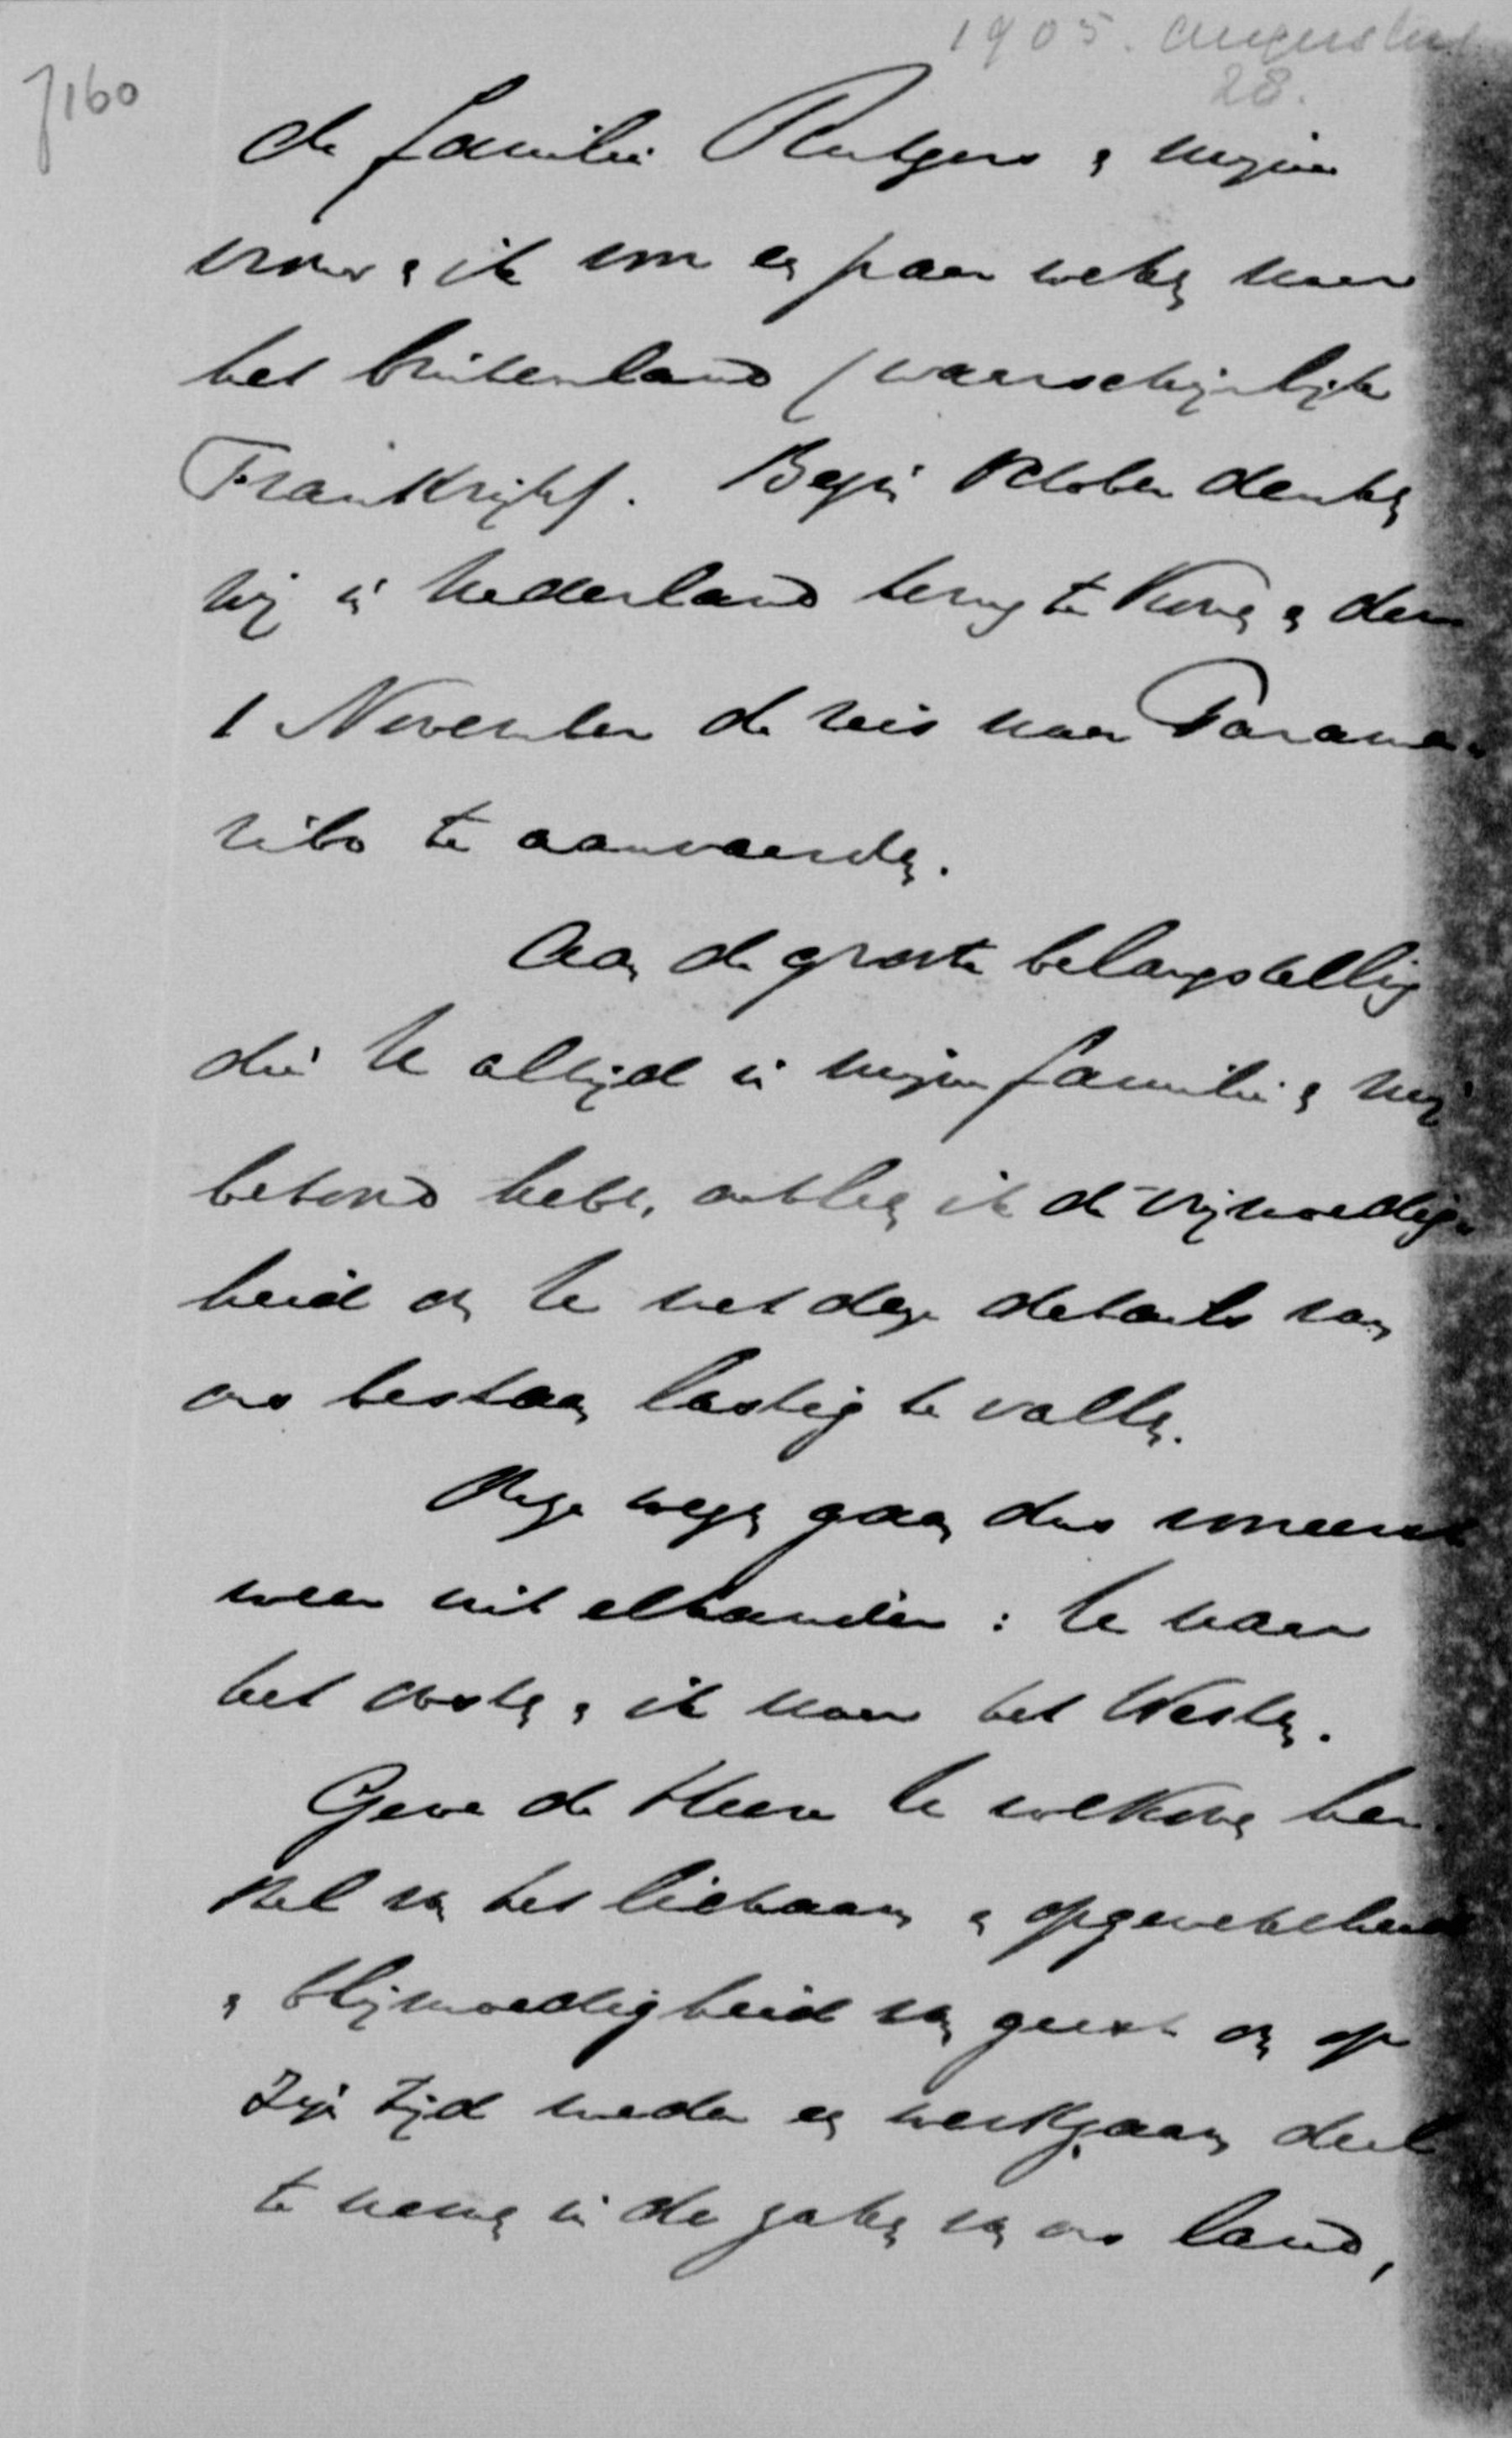 1905. Augustus
28.
7160
de familie Rutgers en mijne
vrouw en ik voor een paar weken naar
het buitenland (waarschijnlijk
Frankrijk). Begin October denken
wij in Nederland terug te komen en den
1 November de reis naar Parama-
ribo te aanvaarden.
Aan de groote belangstelling
die U altijd in mijne familie en mij
betoond hebt, ontleen ik de vrijmoedig-
heid om U met deze details van
ons bestaan lastig te vallen.
Onze wegen gaan dus vooreerst
weer uit elkander: U naar
het Oosten en ik naar het Westen.
Geve de Heere U volkomen her-
stel van het lichaam en opgewektheid
en blijmoedigheid van geest om op
Zijn tijd weder een werkzaam deel
te nemen in de zaken van ons land,